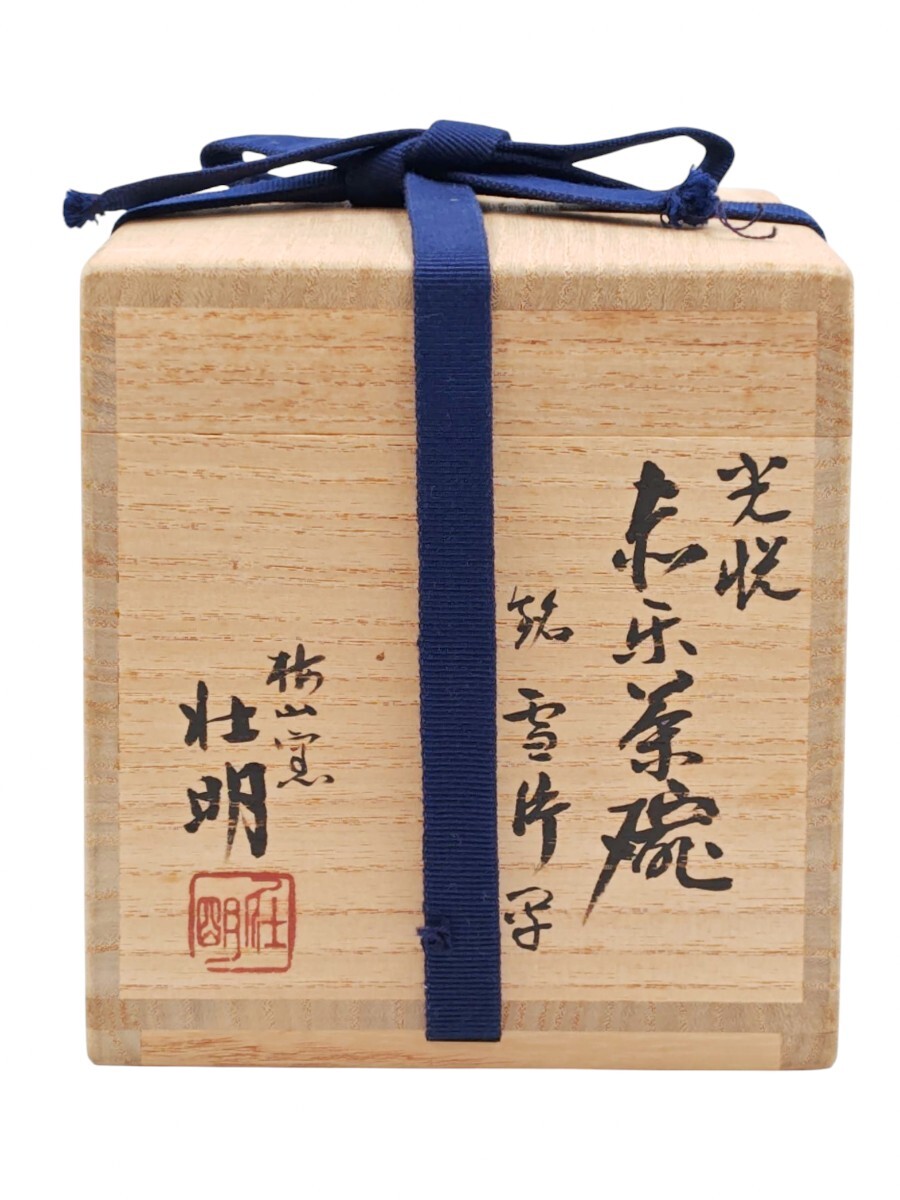 光悦
赤樂茶碗
銘 雪片 写
梅山窯
壮明
壮明